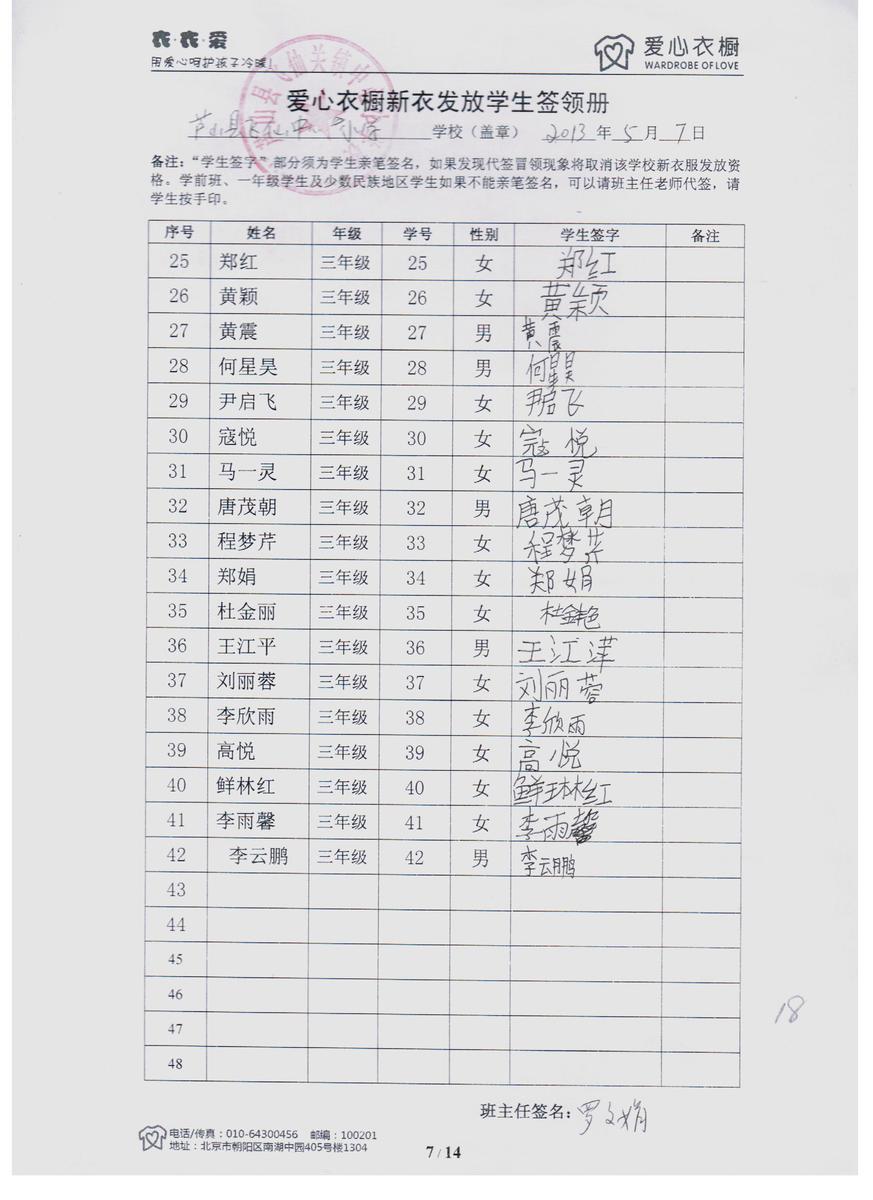 衣·衣·爱
用爱心呵护孩子冷暖!
爱心衣橱
WARDROBE OF LOVE
爱心衣橱新衣发放学生签领册
芦山县飞仙中心小学 学校（盖章） 2013年5月7日
备注：“学生签字”部分须为学生亲笔签名，如果发现代签冒领现象将取消该学校新衣服发放资
格。学前班、一年级学生及少数民族地区学生如果不能亲笔签名，可以请班主任老师代签，请
学生按手印。
序号 姓名 年级 学号 性别 学生签字 备注
25 郑红 三年级 25 女 郑红
26 黄颖 三年级 26 女 黄颖
27 黄震 三年级 27 男 黄震
28 何星昊 三年级 28 男 何星昊
29 尹启飞 三年级 29 女 尹启飞
30 寇悦 三年级 30 女 寇悦
31 马一灵 三年级 31 女 马一灵
32 唐茂朝 三年级 32 男 唐茂朝
33 程梦芹 三年级 33 女 程梦芹
34 郑娟 三年级 34 女 郑娟
35 杜金丽 三年级 35 女 杜金艳
36 王江平 三年级 36 男 王江萍
37 刘丽蓉 三年级 37 女 刘丽蓉
38 李欣雨 三年级 38 女 李欣雨
39 高悦 三年级 39 女 高悦
40 鲜林红 三年级 40 女 鲜琳红
41 李雨馨 三年级 41 女 李雨馨
42 李云鹏 三年级 42 男 李云鹏
43
44
45
46
47
48
18
班主任签名：罗文娟
电话/传真：010-64300456 邮编：100201
地址：北京市朝阳区南湖中园405号楼1304
7 / 14